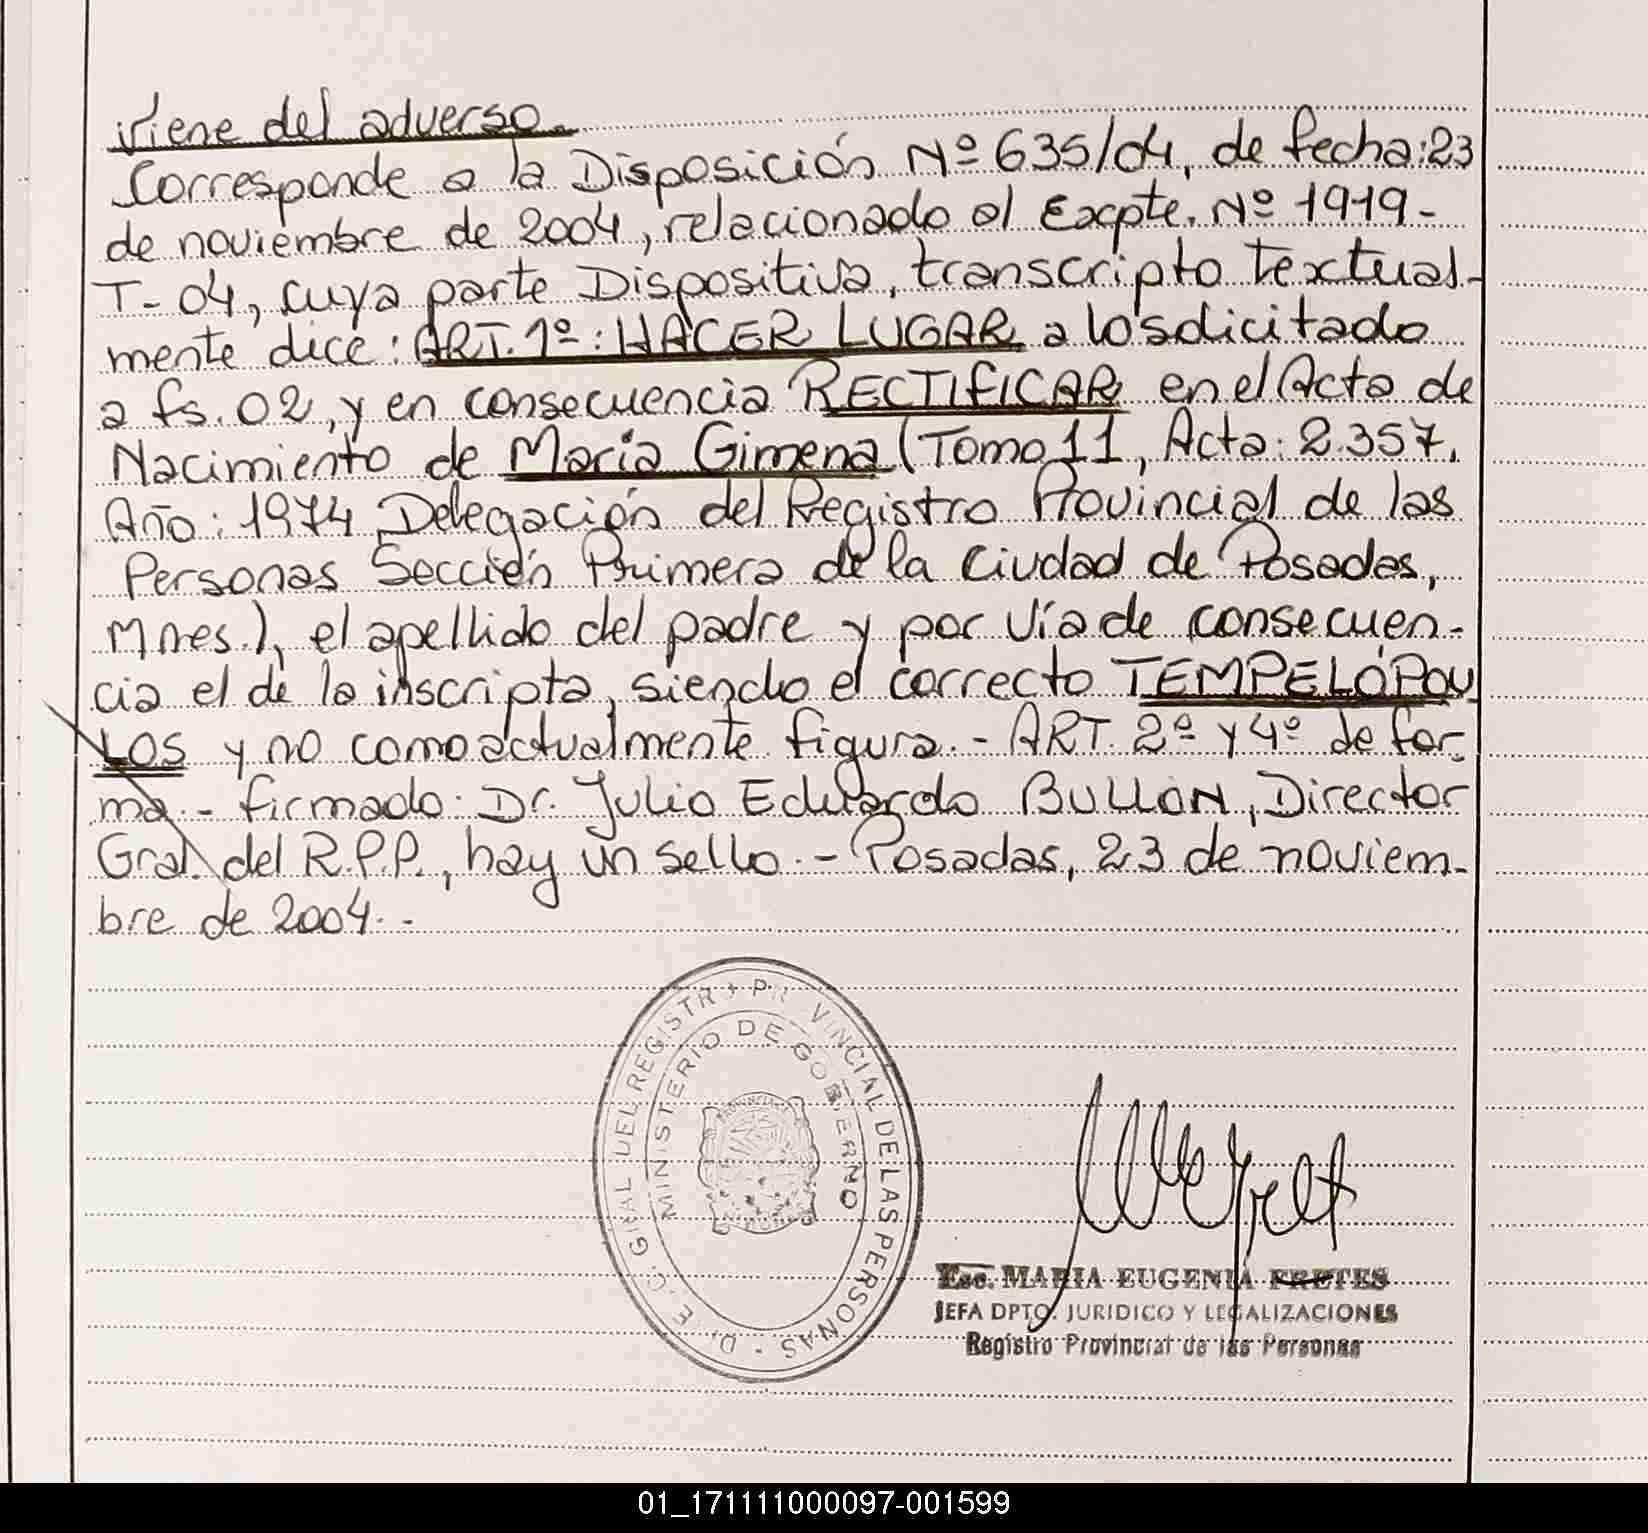 Viene del adverso.
Corresponde a la Disposición Nº 635/04, de fecha: 23
de noviembre de 2004, relacionado al Excpte. Nº 1919-
T-04, cuya parte Dispositiva, transcripto textual-
mente dice: ART. 1º: HACER LUGAR a lo solicitado
a fs. 02, y en consecuencia RECTIFICAR en el Acta de
Nacimiento de María Gimena (Tomo 11, Acta: 2.357,
Año: 1974 Delegación del Registro Provincial de las
Personas Sección Primera de la Ciudad de Posadas,
Mnes.), el apellido del padre y por vía de consecuen-
cia el de la inscripta, siendo el correcto TEMPELÓPOU
LOS y no como actualmente figura.- ART. 2º y 4º de for-
ma.- firmado: Dr. Julio Eduardo BULLON, Director
Gral. del R.P.P., hay un sello.- Posadas, 23 de noviem-
bre de 2004.-
D. E. C. GRAL DEL REGISTRO PROVINCIAL DE LAS PERSONAS
MINISTERIO DE GOBIERNO
Esc. MARIA EUGENIA FRETES
JEFA DPTO. JURIDICO Y LEGALIZACIONES
Registro Provincial de las Personas
01_171111000097-001599